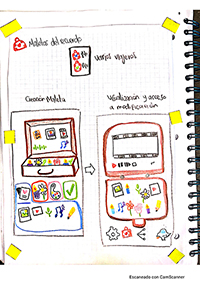 Maletas del recuerdo
varios viajeros
Creación Maleta
Visualización y acceso
a modificación
Escaneado con CamScanner